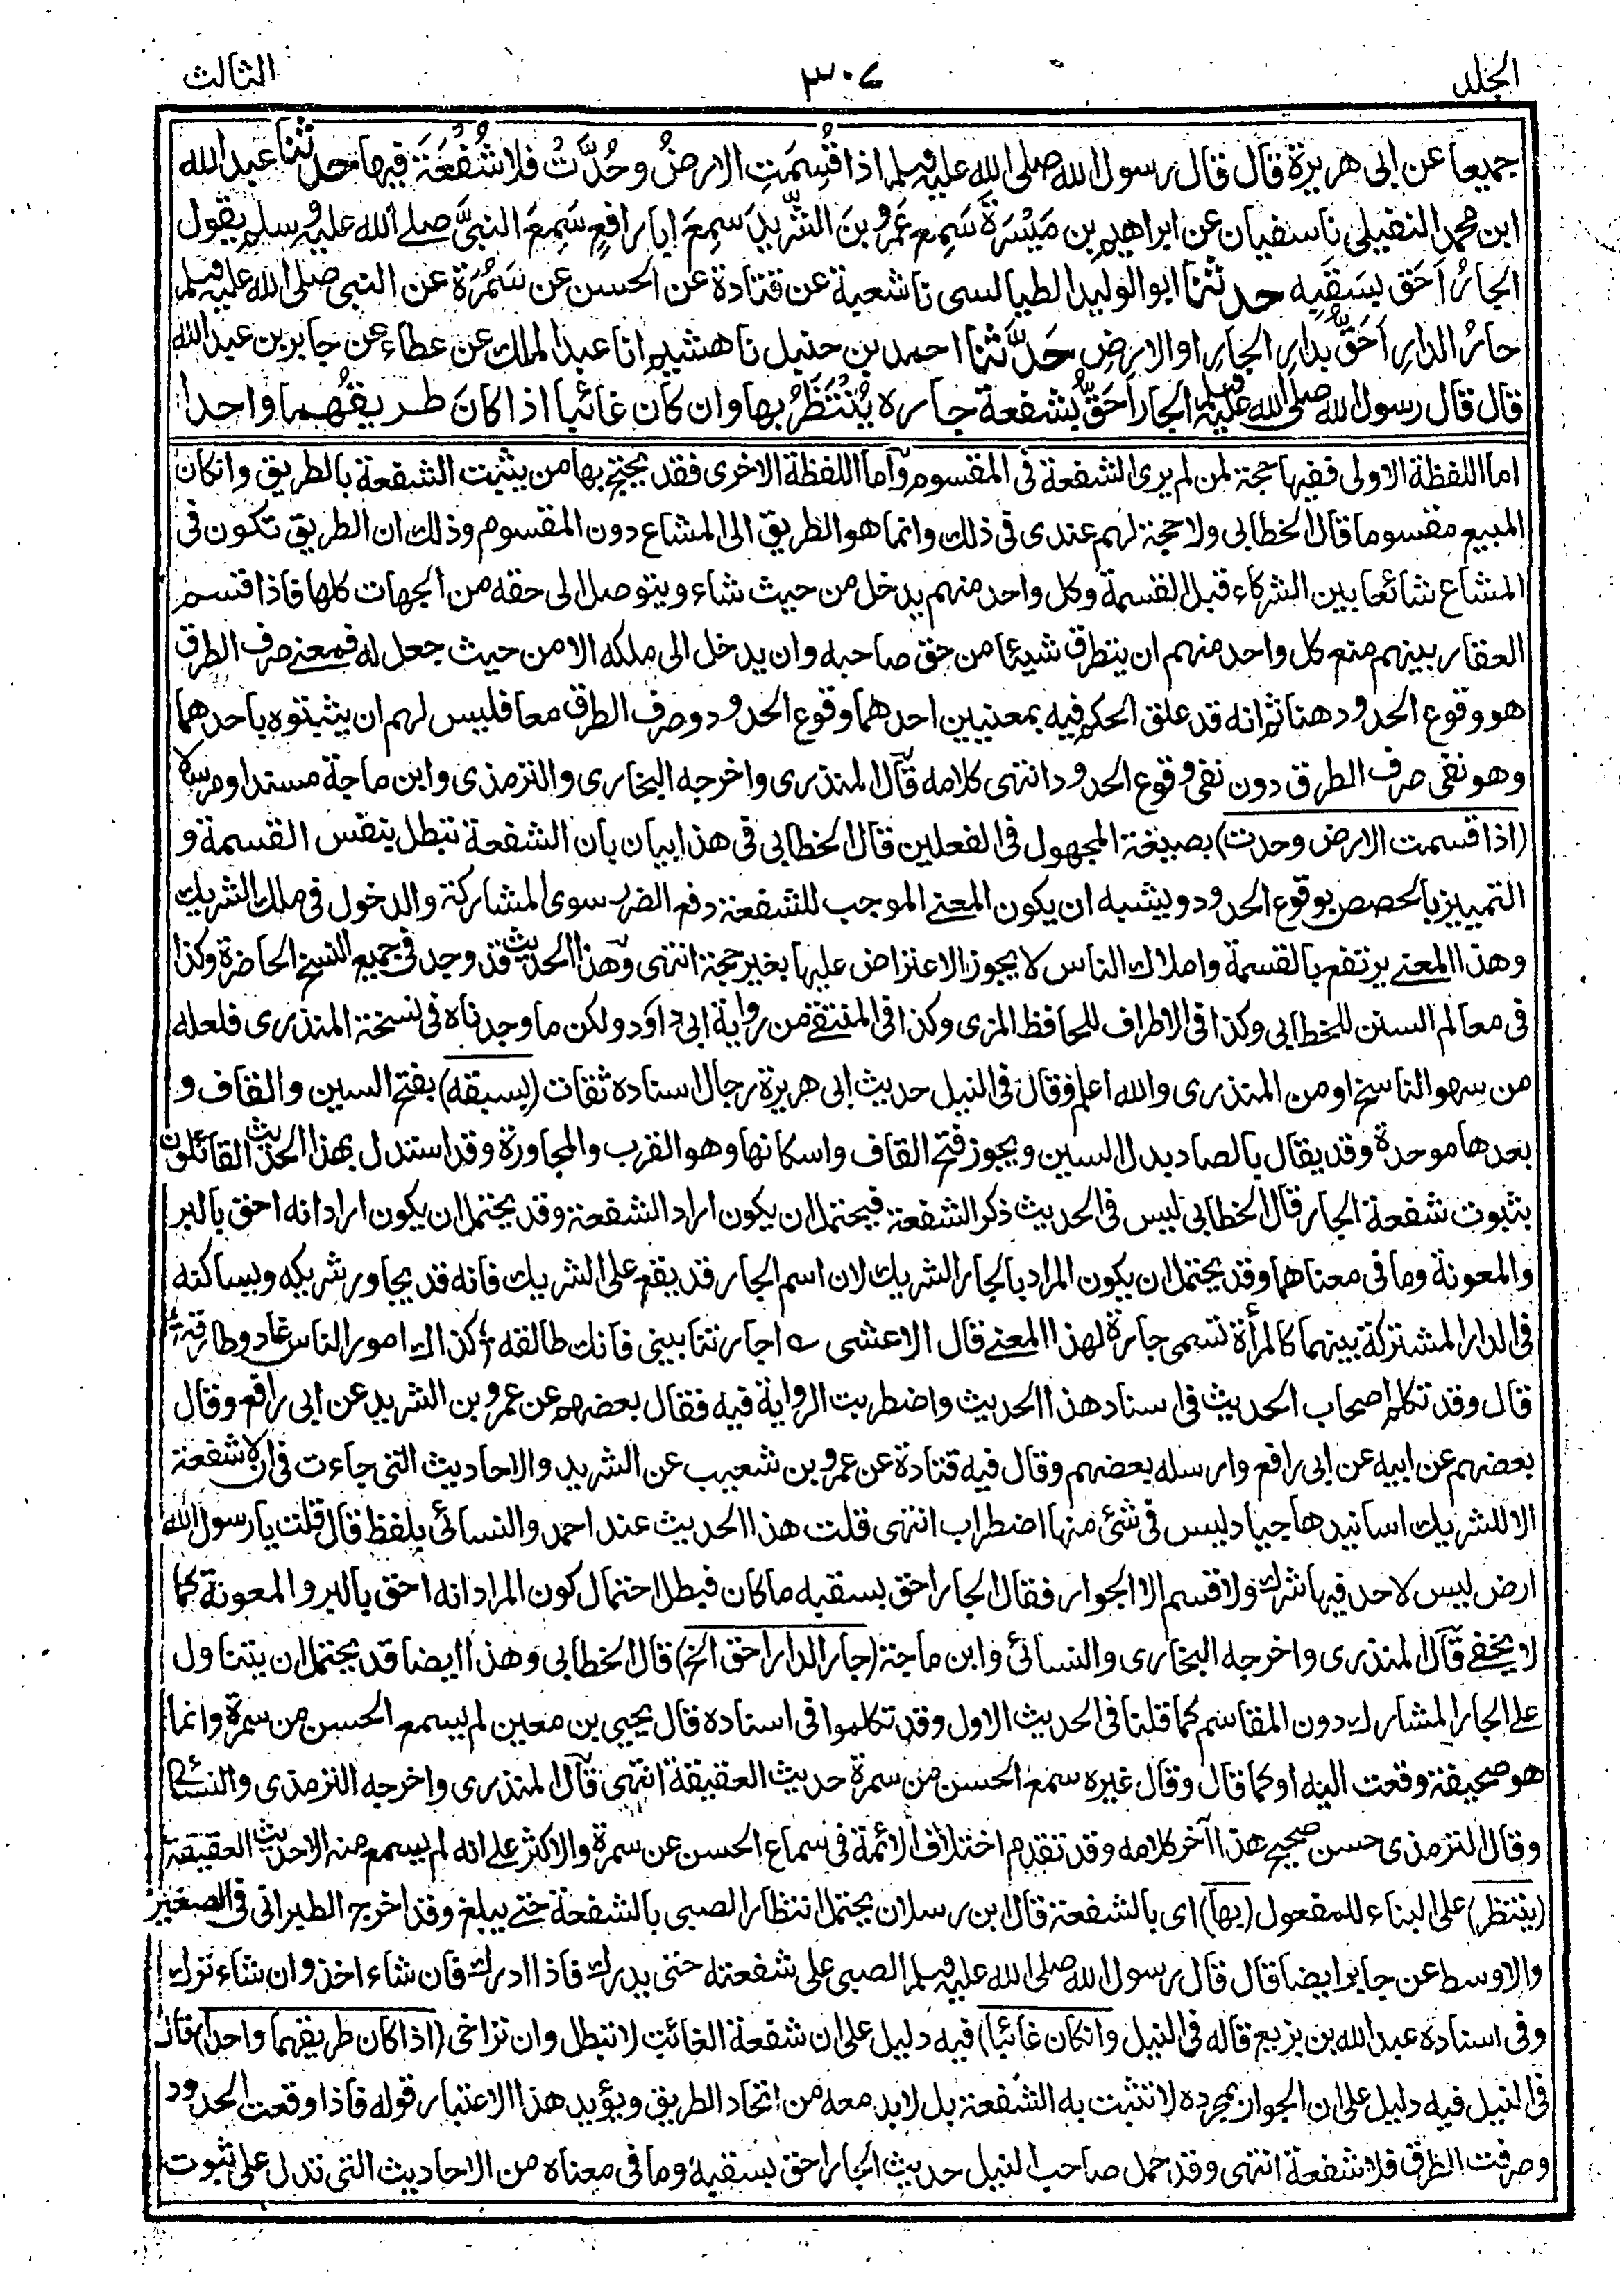 الجلد ٣٠٧ الثالث
جميعا عن ابى هريرة قال قال رسول الله صلى الله عليه وسلم اذا قُسِمَتِ الارضُ وحُدَّتْ فلا شُفْعَةَ فيها حدثنا عبد الله
ابن محمد النفيلى نا سفيان عن ابراهيم بن مَيْسَرَةَ سَمِعَ عَمْرَو بنَ الشَّرِيدِ سمِعَ ابا رافعٍ سَمِعَ النبىَّ صلى الله عليه وسلم يقول
الجارُ اَحَق بسَقَبِه حدثنا ابو الوليد الطيالسى نا شعبة عن قتادة عن الحسن عن سَمُرَة عن النبى صلى الله عليه وسلم
جارُ الدارِ اَحَقُّ بدارِ الجارِ او الارضِ حَدَّثنا احمد بن حنبل نا هشيم انا عبد الملك عن عطاء عن جابر بن عبد الله
قال قال رسول الله صلى الله عليه وسلم الجار اَحَقُّ بشفعة جاره يُنْتَظَرُ بها وان كان غائبا اذا كانَ طريقُهما واحدا
اما اللفظة الاولى ففيها حجة لمن لم يرى الشفعة فى المقسوم واما اللفظة الاخرى فقد يحتج بها من يثبت الشفعة بالطريق وانكان
المبيع مقسوما قال الخطابى ولا حجة لهم عندى فى ذلك وانما هو الطريق الى المشاع دون المقسوم وذلك ان الطريق تكون فى
المشاع شائعا بين الشركاء قبل القسمة وكل واحد منهم يدخل من حيث شاء ويتوصل الى حقه من الجهات كلها فاذا قسم
العقار بينهم منع كل واحد منهم ان يتطرق شيئا من حق صاحبه وان يدخل الى ملكه الا من حيث جعل له فمعنى صرف الطرق
هو وقوع الحدود هنا ثم انه قد علق الحكم فيه بمعنيين احدهما وقوع الحدود وصرف الطرق معا فليس لهم ان يثبتوه باحدهما
وهو نفى صرف الطرق دون نفى وقوع الحدود انتهى كلامه قال المنذرى واخرجه البخارى والترمذى وابن ماجة مسندا ومرسلا
(اذا قسمت الارض وحدت) بصيغة المجهول فى الفعلين قال الخطابى فى هذا بيان بان الشفعة تبطل بنفس القسمة و
التمييز بالحصص بوقوع الحدود ويشبه ان يكون المعنى الموجب للشفعة دفع الضرر سوى المشاركة والدخول فى ملك الشريك
وهذا المعنى يرتفع بالقسمة واملاك الناس لا يجوز الاعتراض عليها بغير حجة انتهى وهذا الحديث قد وجد فى جميع النسخ الحاضرة وكذا
فى معالم السنن للخطابى وكذا فى الاطراف للحافظ المزى وكذا فى المنتقى من رواية ابى داود ولكن ما وجدناه فى نسخة المنذرى فلعله
من سهو الناسخ او من المنذرى والله اعلم وقال فى النيل حديث ابى هريرة رجال اسناده ثقات (بسبقه) بفتح السين والقاف و
بعدها موحدة وقد يقال بالصاد بدل السين ويجوز فتح القاف واسكانها وهو القرب والمجاورة وقد استدل بهذا الحديث القائلون
بثبوت شفعة الجار قال الخطابى ليس فى الحديث ذكر الشفعة فيحتمل ان يكون اراد الشفعة وقد يحتمل ان يكون اراد انه احق بالبر
والمعونة وما فى معناهما وقد يحتمل ان يكون المراد بالجار الشريك لان اسم الجار قد يقع على الشريك فانه قد يجاور شريكه ويساكنه
فى الدار المشتركة بينهما كالمرأة تسمى جارة لهذا المعنى قال الاعشى اجارتنا بينى فانك طالقه كذاك امور الناس غاد وطارقه
قال وقد تكلم اصحاب الحديث فى اسناد هذا الحديث واضطربت الرواية فيه فقال بعضهم عن عمرو بن الشريد عن ابى رافع وقال
بعضهم عن ابيه عن ابى رافع وارسله بعضهم وقال فيه قتادة عن عمرو بن شعيب عن الشريد والاحاديث التى جاءت فى ان لا شفعة
الا للشريك اسانيدها جياد ليس فى شئ منها اضطراب انتهى قلت هذا الحديث عند احمد والنسائى بلفظ قال قلت يا رسول الله
ارض ليس لاحد فيها شرك ولا قسم الا الجوار فقال الجار احق بسقبه ما كان فبطل احتمال كون المراد انه احق بالبر والمعونة كما
لا يخفى قال المنذرى واخرجه البخارى والنسائى وابن ماجة (جار الدار احق الخ) قال الخطابى وهذا ايضا قد يحتمل ان يتناول
على الجار المشارك دون المقاسم كما قلنا فى الحديث الاول وقد تكلموا فى اسناده قال يحيى بن معين لم يسمع الحسن من سمرة وانما
هو صحيفة وقعت اليه او كما قال وقال غيره سمع الحسن من سمرة حديث العقيقة انتهى قال المنذرى واخرجه الترمذى والنسائى
وقال الترمذى حسن صحيح هذا آخر كلامه وقد تقدم اختلاف الائمة فى سماع الحسن عن سمرة والاكثر على انه لم يسمع منه الا حديث العقيقة
(ينتظر) على البناء للمفعول (بها) اى بالشفعة قال ابن رسلان يحتمل انتظار الصبى بالشفعة حتى يبلغ وقد اخرج الطبرانى فى الصغير
والاوسط عن جابر ايضا قال قال رسول الله صلى الله عليه وسلم الصبى على شفعته حتى يدرك فاذا ادرك فان شاء اخذ وان شاء ترك
وفى اسناده عبد الله بن بزيع قاله فى النيل (وانكان غائبا) فيه دليل على ان شفعة الغائب لا تبطل وان تراخى (اذا كان طريقهما واحدا) قال
فى النيل فيه دليل على ان الجوار بمجرده لا تثبت به الشفعة بل لا بد معه من اتحاد الطريق ويؤيد هذا الاعتبار قوله فاذا وقعت الحدود
وصرفت الطرق فلا شفعة انتهى وقد حمل صاحب النيل حديث الجار احق بسقبه وما فى معناه من الاحاديث التى تدل على ثبوت